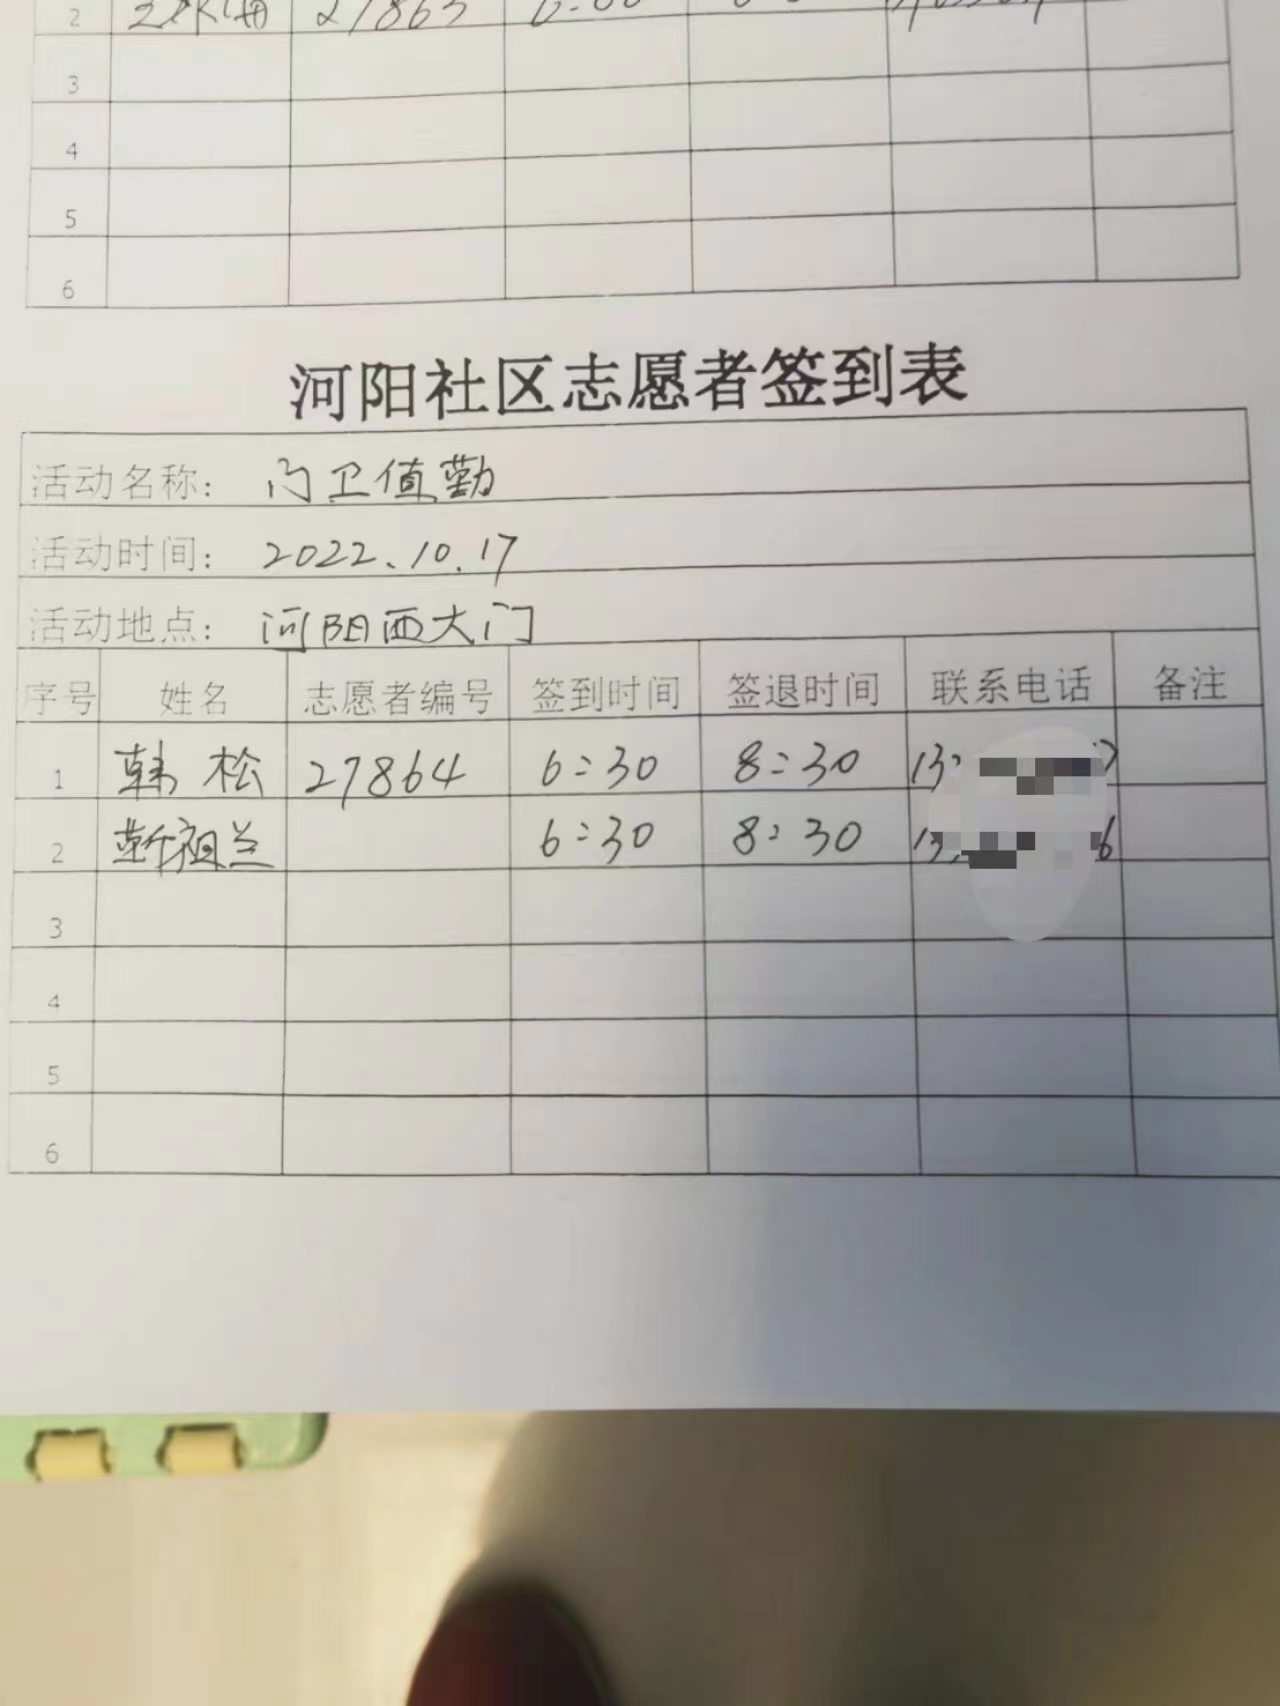 2 27865
3
4
5
6
河阳社区志愿者签到表
活动名称： 门卫值勤
活动时间： 2022.10.17
活动地点： 河阳西大门
序号 姓名 志愿者编号 签到时间 签退时间 联系电话 备注
1 韩松 27864 6:30 8:30 13
2 靳祖兰 6:30 8:30 13 6
3
4
5
6